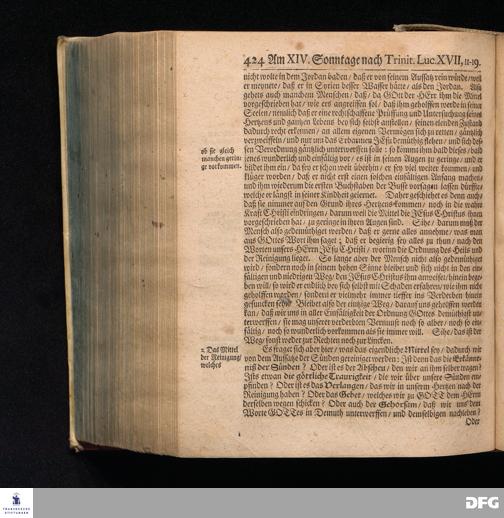 424 Am XIV. Sonntage nach Trinit. Luc. XVII, 11-19.
nicht wolte in dem Jordan baden / daß er von seinem Aussatz rein würde / weil
er meynete / daß er in Syrien besser Wasser hätte / als den Jordan. Also
gehets auch manchem Menschen / daß / da GOtt der HErr ihm die Mittel
vorgeschrieben hat / wie ers angreiffen sol / daß ihm geholffen werde in seiner
Seelen / nemlich daß er eine rechtschaffene Prüffung und Untersuchung seines
Hertzens und gantzen Lebens bey sich selbst anstellen / seinen elenden Zustand
dadurch recht erkennen / an allem eigenen Vermögen sich zu retten / gäntzlich
verzweiffeln / und nur um das Erbarmen JEsu demüthig flehen / und sich dessen
Verordnung gäntzlich unterwerffen solle : so kommt ihm bald dieses / bald
ob sie gleich
manchen gerin-
ge vorkommen.
jenes wunderlich und einfältig vor / es ist in seinen Augen zu geringe / und er
bildet ihm ein / da sey er schon weit überhin / er sey viel weiter kommen / und
klüger worden / daß er nicht erst einen solchen einfältigen Anfang machen /
und ihm wiederum die ersten Buchstaben der Busse vorsagen lassen dürffte /
welche er längst in seiner Kindheit gelernet. Daher geschiehet es denn auch /
daß sie nimmer auf den Grund ihres Hertzens kommen / noch in die wahre
Krafft Christi eindringen / darum weil die Mittel die JEsus Christus ihnen
vorgeschrieben hat / zu geringe in ihren Augen sind. Sihe / darum muß der
Mensch also gedemüthiget werden / daß er gerne alles annehme / was man
aus GOttes Wort ihm saget ; daß er begierig sey alles zu thun / nach den
Worten unsers HErrn JEsu Christi / worinn die Ordnung des Heils und
der Reinigung lieget. So lange aber der Mensch nicht also gedemüthiget
wird / sondern noch in seinem hohen Sinne bleibet und sich nicht in den einfältigen
und niedrigen Weg / den JEsus Christus ihm anweiset / hinein begeben
will / so wird er endlich bey sich selbst mit Schaden erfahren / wie ihm nicht
geholffen worden / sondern er vielmehr immer tieffer ins Verderben hinein
gesuncken sey. Bleibet also der eintzige Weg / darauf uns geholffen werden
kan / daß wir uns in aller Einfältigkeit der Ordnung GOttes demüthigst unterwerffen /
sie mag unserer verderbten Vernunft noch so alber / noch so einfältig /
noch so wunderlich vorkommen als sie immer will. Sihe / das ist der
Weg / sonst weder zur Rechten noch zur Lincken.
2. Das Mittel
der Reinigung /
welches
Es fraget sich aber hier / was das eigentliche Mittel sey / dadurch wir
von dem Aussatze der Sünden gereiniget werden : Ist denn das die Erkäntniß
der Sünden ? Oder ist es der Abscheu / den wir an ihm selber tragen?
Ists etwan die göttliche Traurigkeit / die wir über unsere Sünden empfinden ?
Oder ist es das Verlangen / das wir in unserm Hertzen nach der
Reinigung haben ? Oder das Gebet / welches wir zu GOTT dem HErrn
derselben wegen schicken ? Oder auch der Gehorsam / daß wir uns dem
Worte GOTTes in Demuth unterwerffen / und demselbigen nachleben ?
Oder
DFG